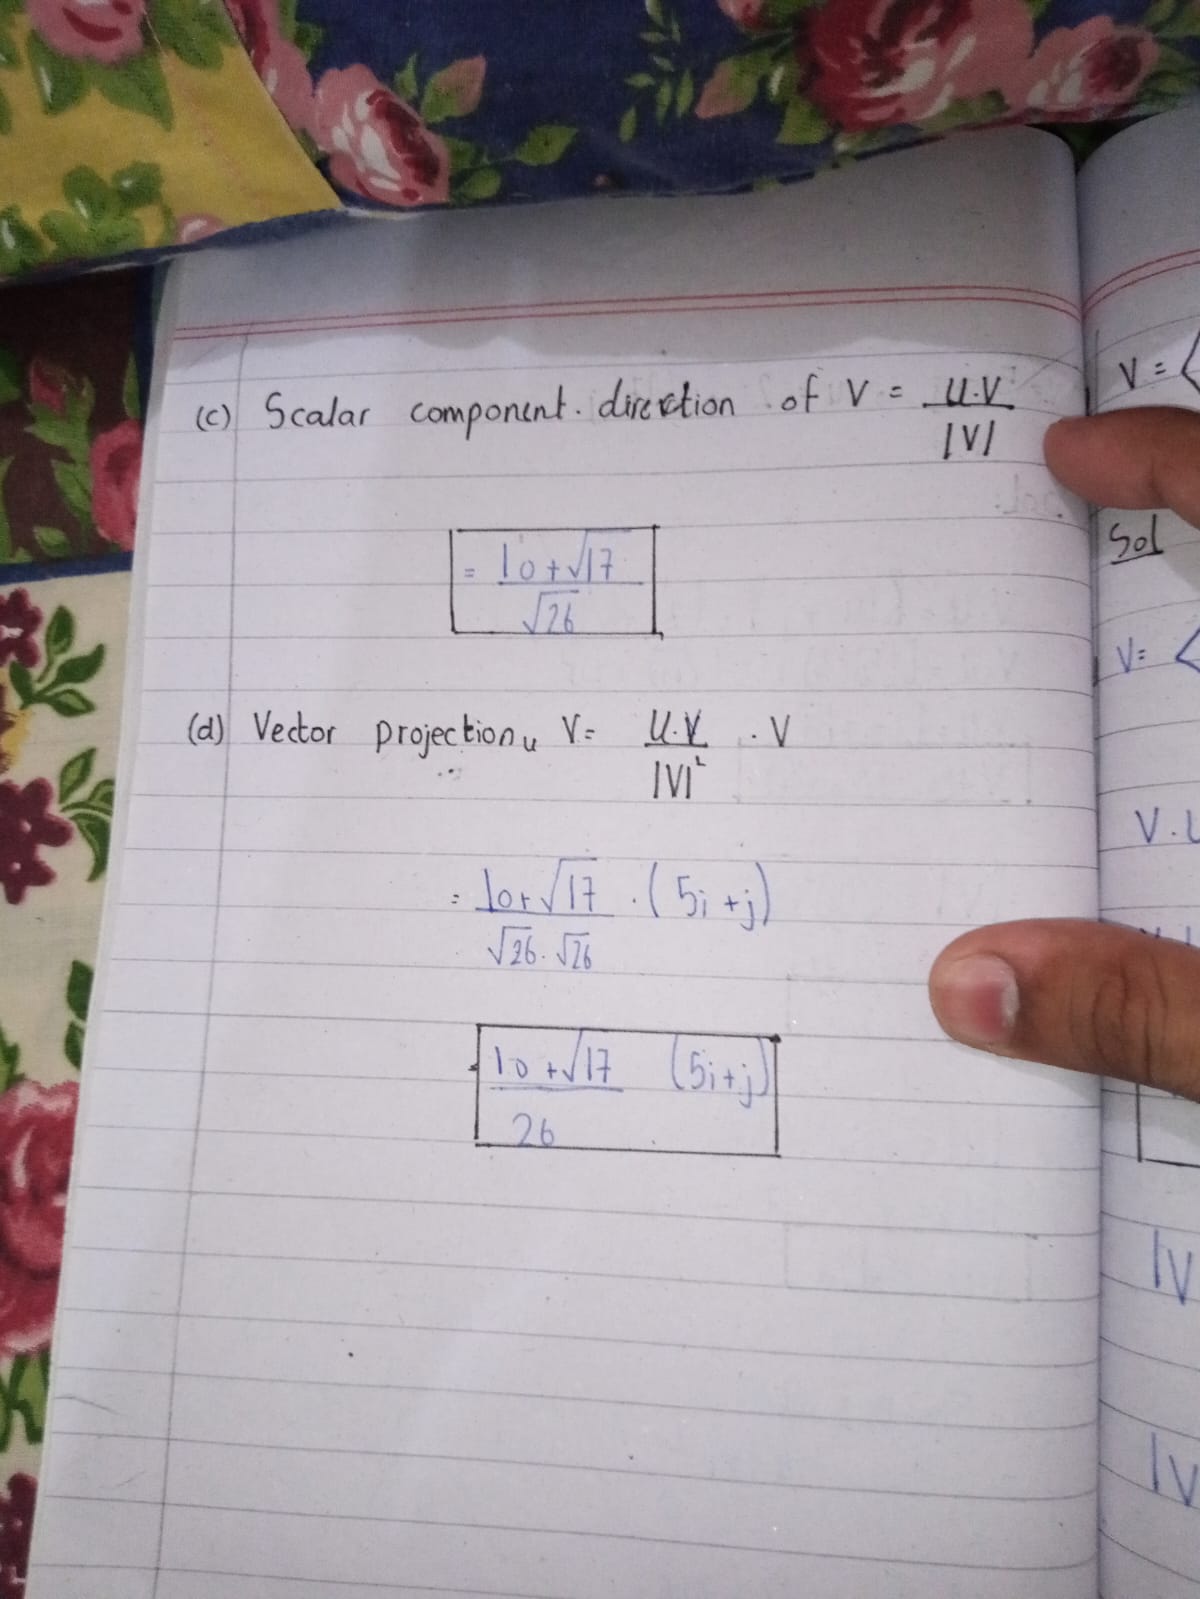 (c) Scalar component. direction of V = U.V / |V|
= 10+√17 / √26
(d) Vector projection u V = U.V / |V|² . V
= 10+√17 / √26.√26 . (5i+j)
10+√17 / 26 (5i+j)
V = <
Sol
V= <
V.U
|V
|V